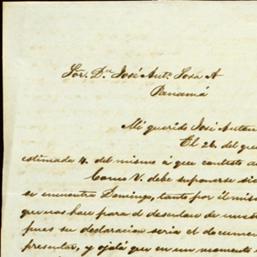 Sor. Dn. José Anto. Sosa A
Panamá
Mi querido José Anton
El 26. del que
estimada 4. del mismo á que contesto a
Como V. debe suponerse si
se encuentra Domingo, tanto por el mis
que nos hace para el desenlace de nuest
pues su declaracion seria el documen
presentar, y ojalá que en un momento